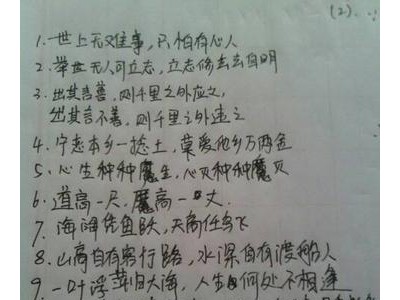 (2)
1. 世上无难事，只怕有心人
2. 举世无人可立志，立志修去去自明
3. 出其言善，则千里之外应之，
出其言不善，则千里之外违之
4. 宁恋本乡一捻土，莫爱他乡万两金
5. 心生种种魔生，心灭种种魔灭
6. 道高一尺，魔高一丈.
7. 海阔凭鱼跃，天高任鸟飞
8. 山高自有客行路，水深自有渡船人
9. 一叶浮萍归大海，人生何处不相逢